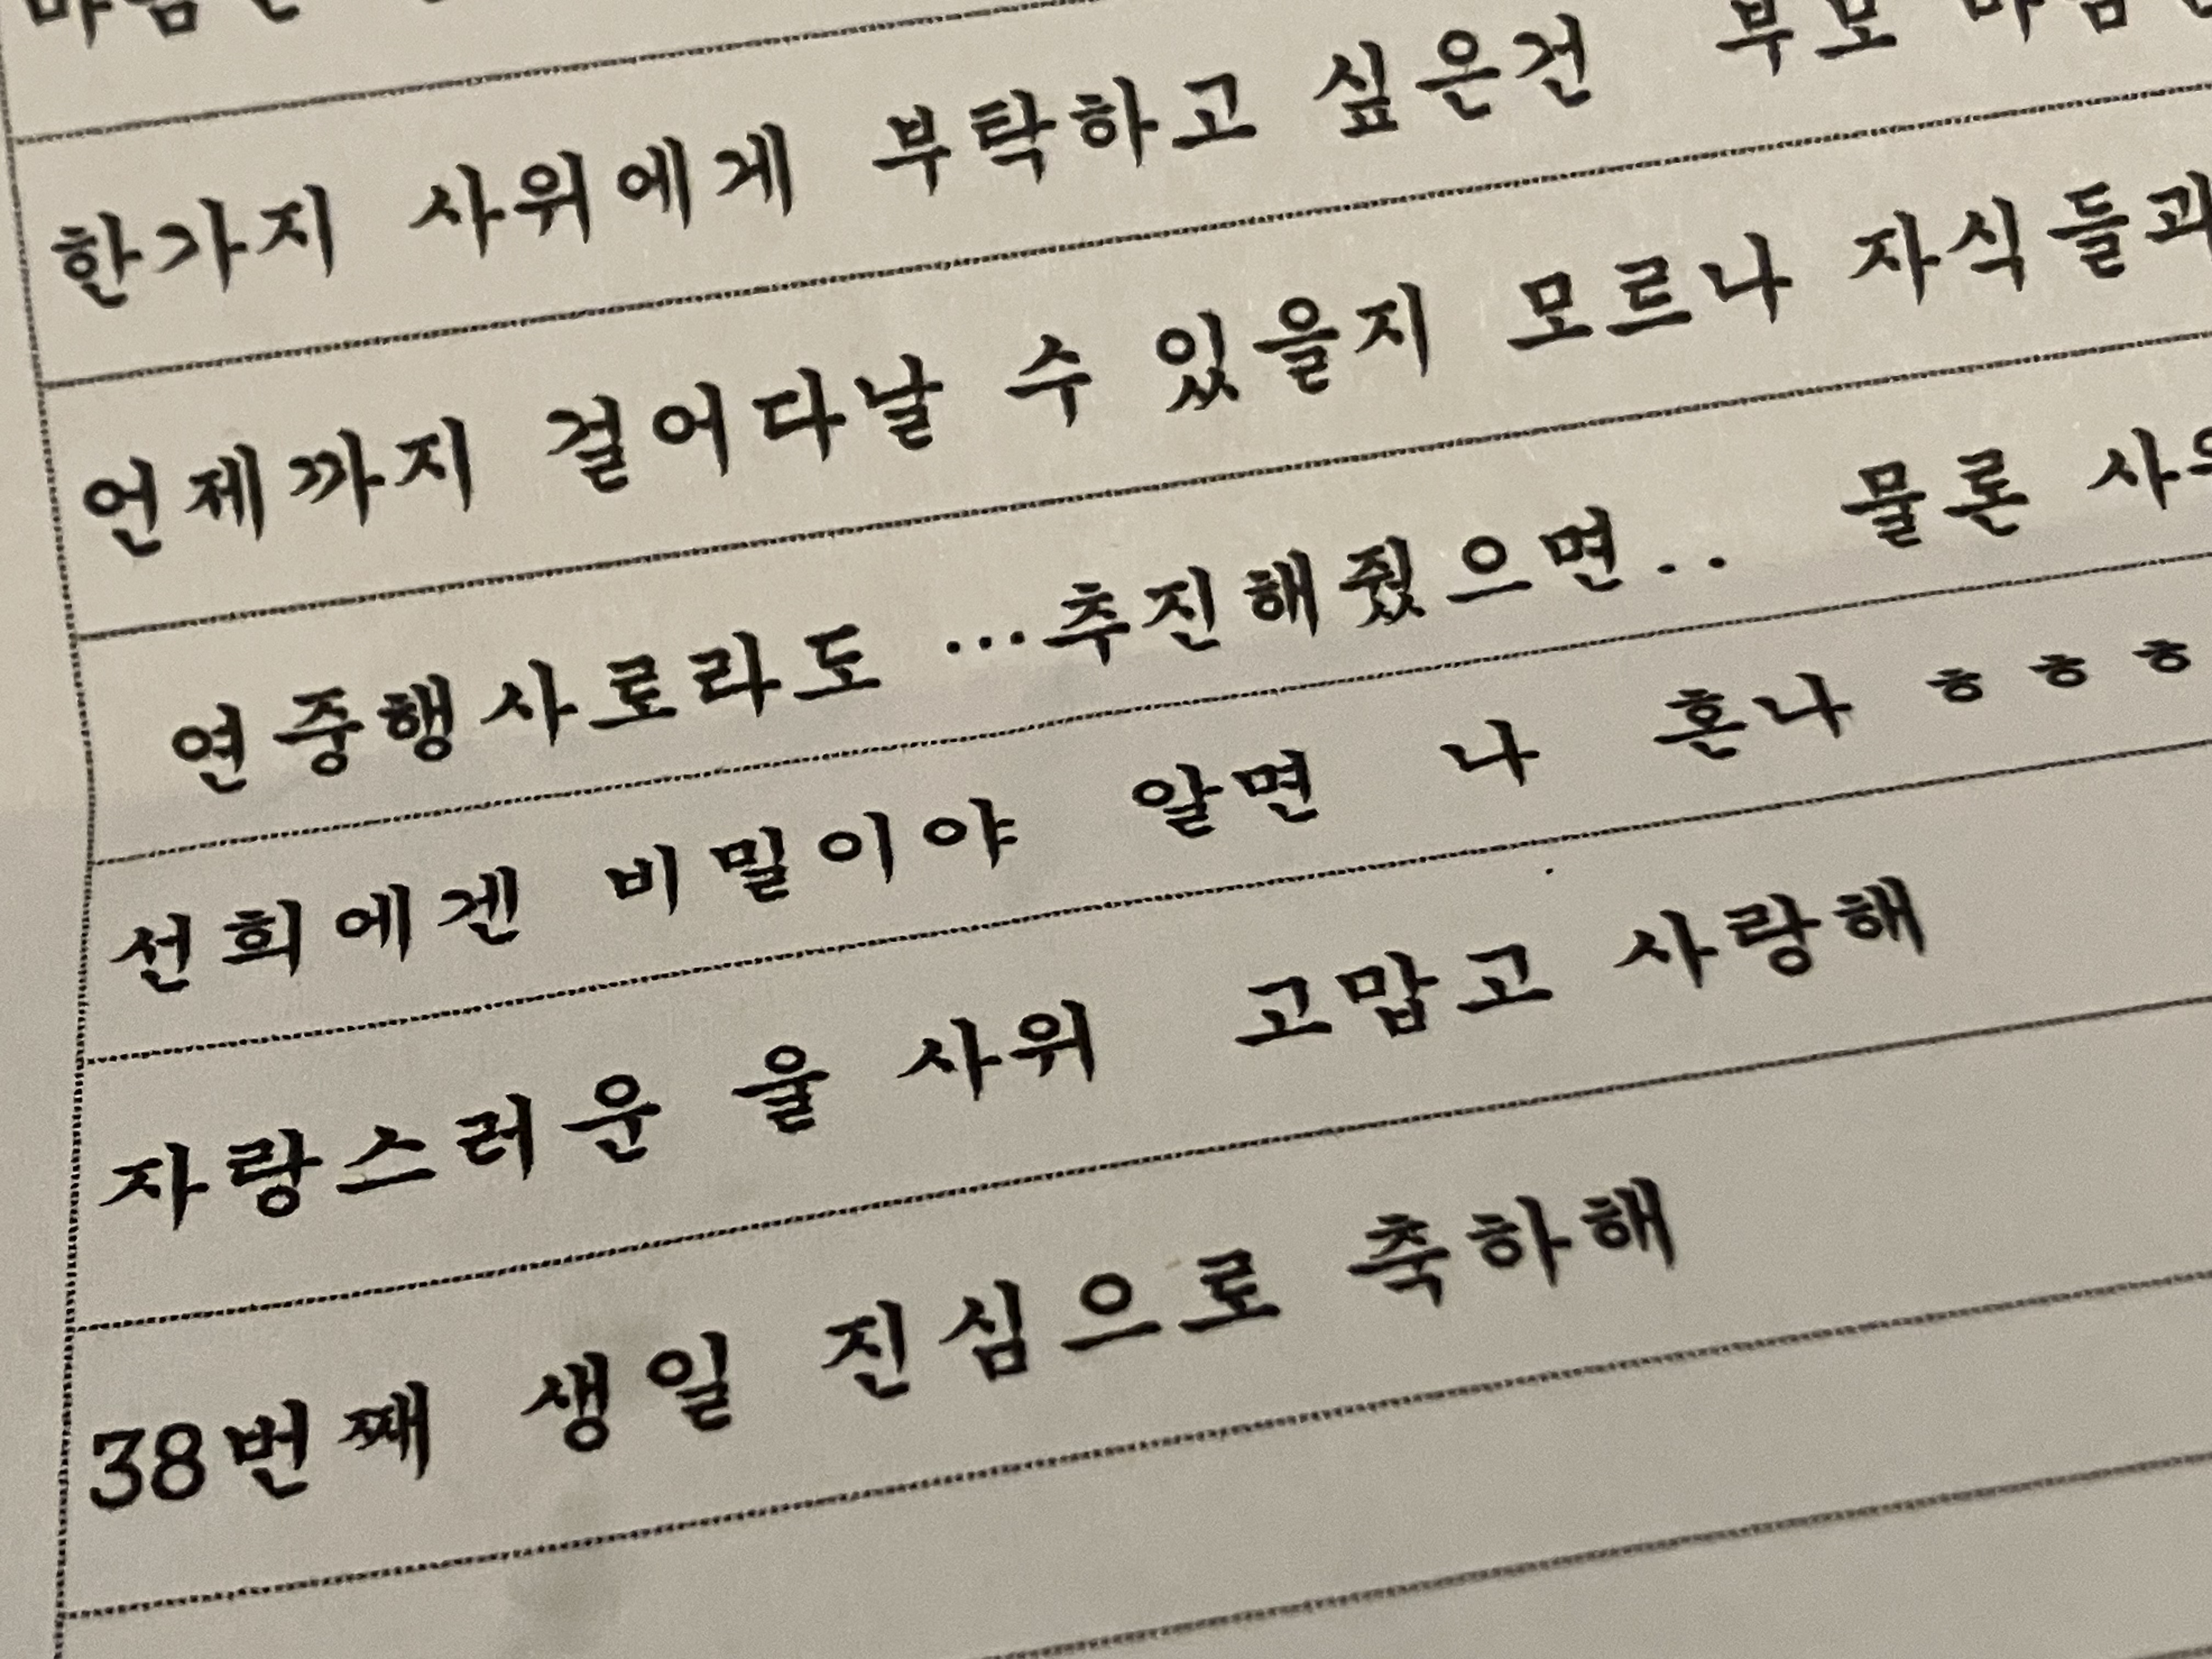 한가지 사위에게 부탁하고 싶은건 부모
언제까지 걸어다날 수 있을지 모르나 자식들과
연중행사로라도 ...추진해줬으면.. 물론
선희에겐 비밀이야 알면 나 혼나 ㅎㅎㅎ
자랑스러운 울 사위 고맙고 사랑해
38번째 생일 진심으로 축하해